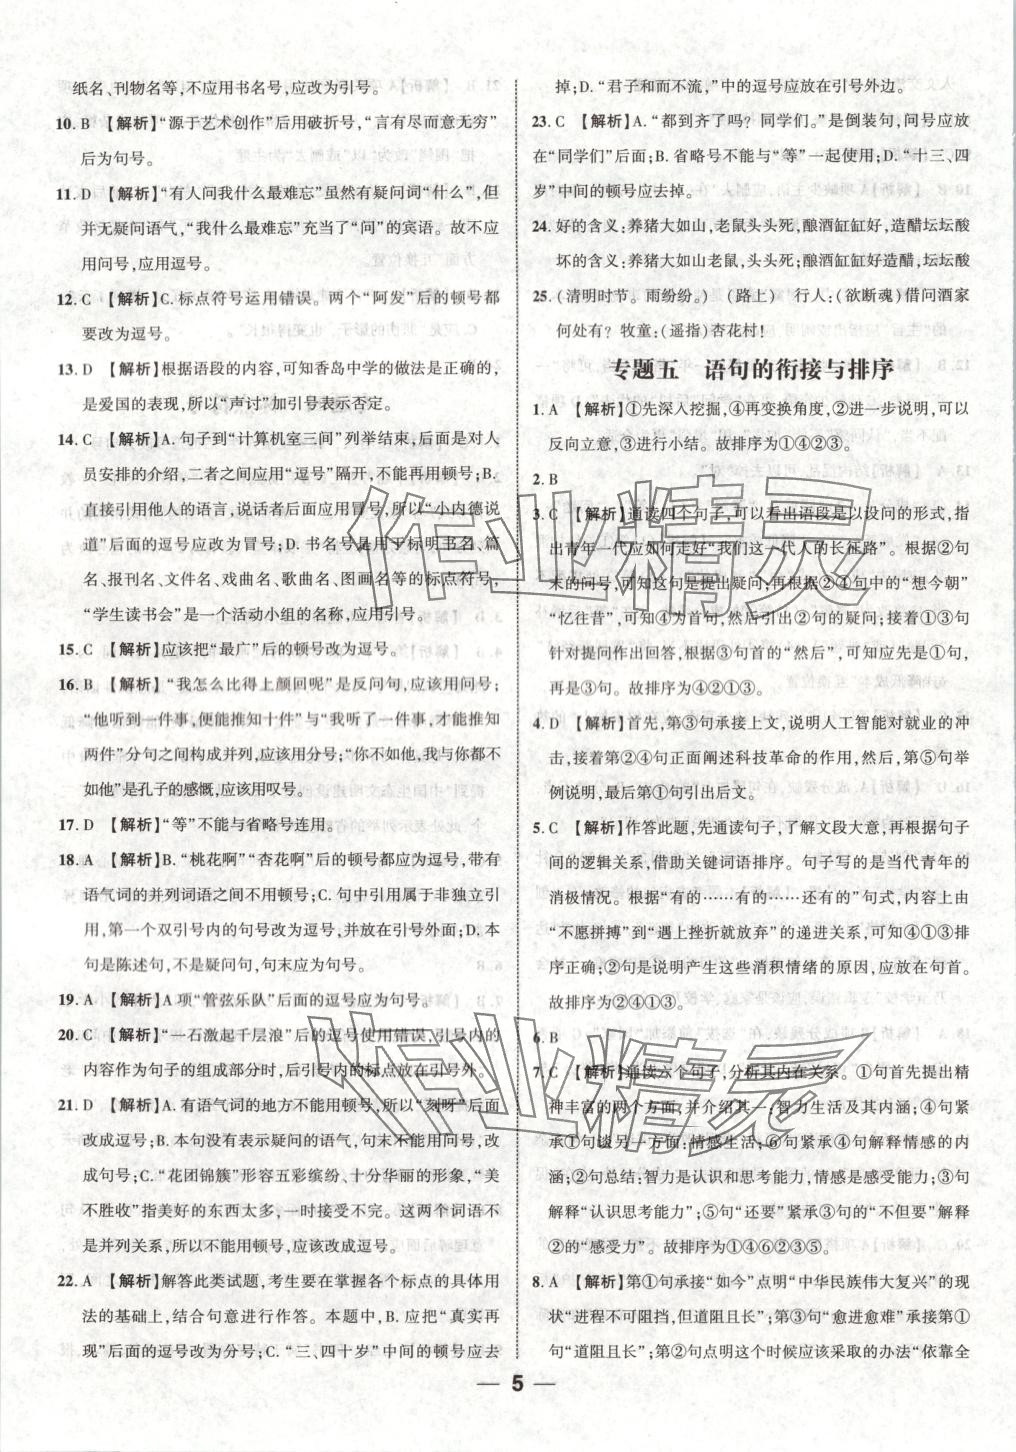 纸名、刊物名等,不应用书名号,应改为引号。
10. B 【解析】“源于艺术创作”后用破折号,“言有尽而意无穷”
后为句号。
11. D 【解析】“有人问我什么最难忘”虽然有疑问词“什么”,但
并无疑问语气,“我什么最难忘”充当了“问”的宾语。故不应
用问号,应用逗号。
12. C 【解析】C. 标点符号运用错误。两个“阿发”后的顿号都
要改为逗号。
13. D 【解析】根据语段的内容,可知香岛中学的做法是正确的,
是爱国的表现,所以“声讨”加引号表示否定。
14. C 【解析】A. 句子到“计算机室三间”列举结束,后面是对人
员安排的介绍,二者之间应用“逗号”隔开,不能再用顿号;B.
直接引用他人的语言,说话者后面应用冒号,所以“小内德说
道”后面的逗号应改为冒号;D. 书名号是用于标明书名、篇
名、报刊名、文件名、戏曲名、歌曲名、图画名等的标点符号,
“学生读书会”是一个活动小组的名称,应用引号。
15. C 【解析】应该把“最广”后的顿号改为逗号。
16. B 【解析】“我怎么比得上颜回呢”是反问句,应该用问号;
“他听到一件事,便能推知十件”与“我听了一件事,才能推知
两件”分句之间构成并列,应该用分号;“你不如他,我与你都不
如他”是孔子的感慨,应该用叹号。
17. D 【解析】“等”不能与省略号连用。
18. A 【解析】B. “桃花啊”“杏花啊”后的顿号都应为逗号,带有
语气词的并列词语之间不用顿号;C. 句中引用属于非独立引
用,第一个双引号内的句号改为逗号,并放在引号外面;D. 本
句是陈述句,不是疑问句,句末应为句号。
19. A 【解析】A 项“管弦乐队”后面的逗号应为句号。
20. C 【解析】“一石激起千层浪”后的逗号使用错误,引号内的
内容作为句子的组成部分时,引号内的标点放在引号外。
21. D 【解析】A. 有语气词的地方不能用顿号,所以“刻呀”后面
改成逗号;B. 本句没有表示疑问的语气,句末不能用问号,改
成句号;C. “花团锦簇”形容五彩缤纷、十分华丽的形象,“美
不胜收”指美好的东西太多,一时接受不完。这两个词语不
是并列关系,所以引号后的顿号,应该改成逗号。
22. A 【解析】解答此类试题,考生要在掌握各个标点的具体用
法的基础上,结合句意进行作答。本题中,B. 应把“真实再
现”后面的逗号改为分号;C. “三、四十岁”中间的顿号应去
掉;D. “君子和而不流,”中的逗号应放在引号外边。
23. C 【解析】A. “都到齐了吗?同学们。”是倒装句,问号应放
在“同学们”后面;B. 省略号不能与“等”一起使用;D. “十三、四
岁”中间的顿号应去掉。
24. 好的含义:养猪大如山,老鼠头头死,酿酒缸缸好,造醋坛坛酸
坏的含义:养猪大如山老鼠,头头死;酿酒缸缸好造醋,坛坛酸
25. (清明时节。雨纷纷。) (路上) 行人:(欲断魂)借问酒家
何处有? 牧童:(遥指)杏花村!
专题五 语句的衔接与排序
1. A 【解析】①先深入挖掘,④再变换角度,②进一步说明,可以
反向立意,③进行小结。故排序为①④②③。
2. B
3. C 【解析】通读四个句子,可以看出语段是以设问的形式,指
出青年一代应如何走好“我们这一代人的长征路”。根据②句
末的问号,可知这句是提出疑问;再根据②④句中的“想今朝”
“忆往昔”,可知④为首句,然后引出②句的疑问;接着①句
针对提问作出回答。根据③句的“然后”,可知应先是①句,
再是③句。故排序为④②①③。
4. D 【解析】首先,第③句承接上文,说明人工智能对就业的冲
击,接着第②④句正面阐述科技革命的作用,然后,第⑤句举
例说明,最后以第①句引出后文。
5. C 【解析】作答此题,先通读句子,了解文段大意,再根据句子
间的逻辑关系,借助关键词语排序。句子写的是当代青年的
消极情况。根据“有的……有的……还有的”句式,内容上由
“不愿拼搏”到“遇上挫折就放弃”的递进关系,可知④①③排
序正确;②句是说明产生这些消积情绪的原因,应放在句首。
故排序为②④①③。
6. B
7. C 【解析】通读六个句子,分析其内在关系。①句首先提出精
神丰富的两个方面,并介绍其一:智力生活及其内涵;④句紧
承①句谈另一方面:情感生活;⑥句紧承④句解释情感的内
涵;②句总结:智力是认识和思考能力,情感是感受能力;③句
解释“认识思考能力”;⑤句“还要”紧承③的“不但要”解释
②的“感受力”。故排序为①④⑥②③⑤。
8. A 【解析】第①句承接“如今”点明“中华民族伟大复兴”的现
状“进程不可阻挡,但道阻且长”,第③句“愈进愈难”承接第①
句“道阻且长”,第④②句点明这个时候应该采取的办法“依靠全
5
作业精灵
作业精灵